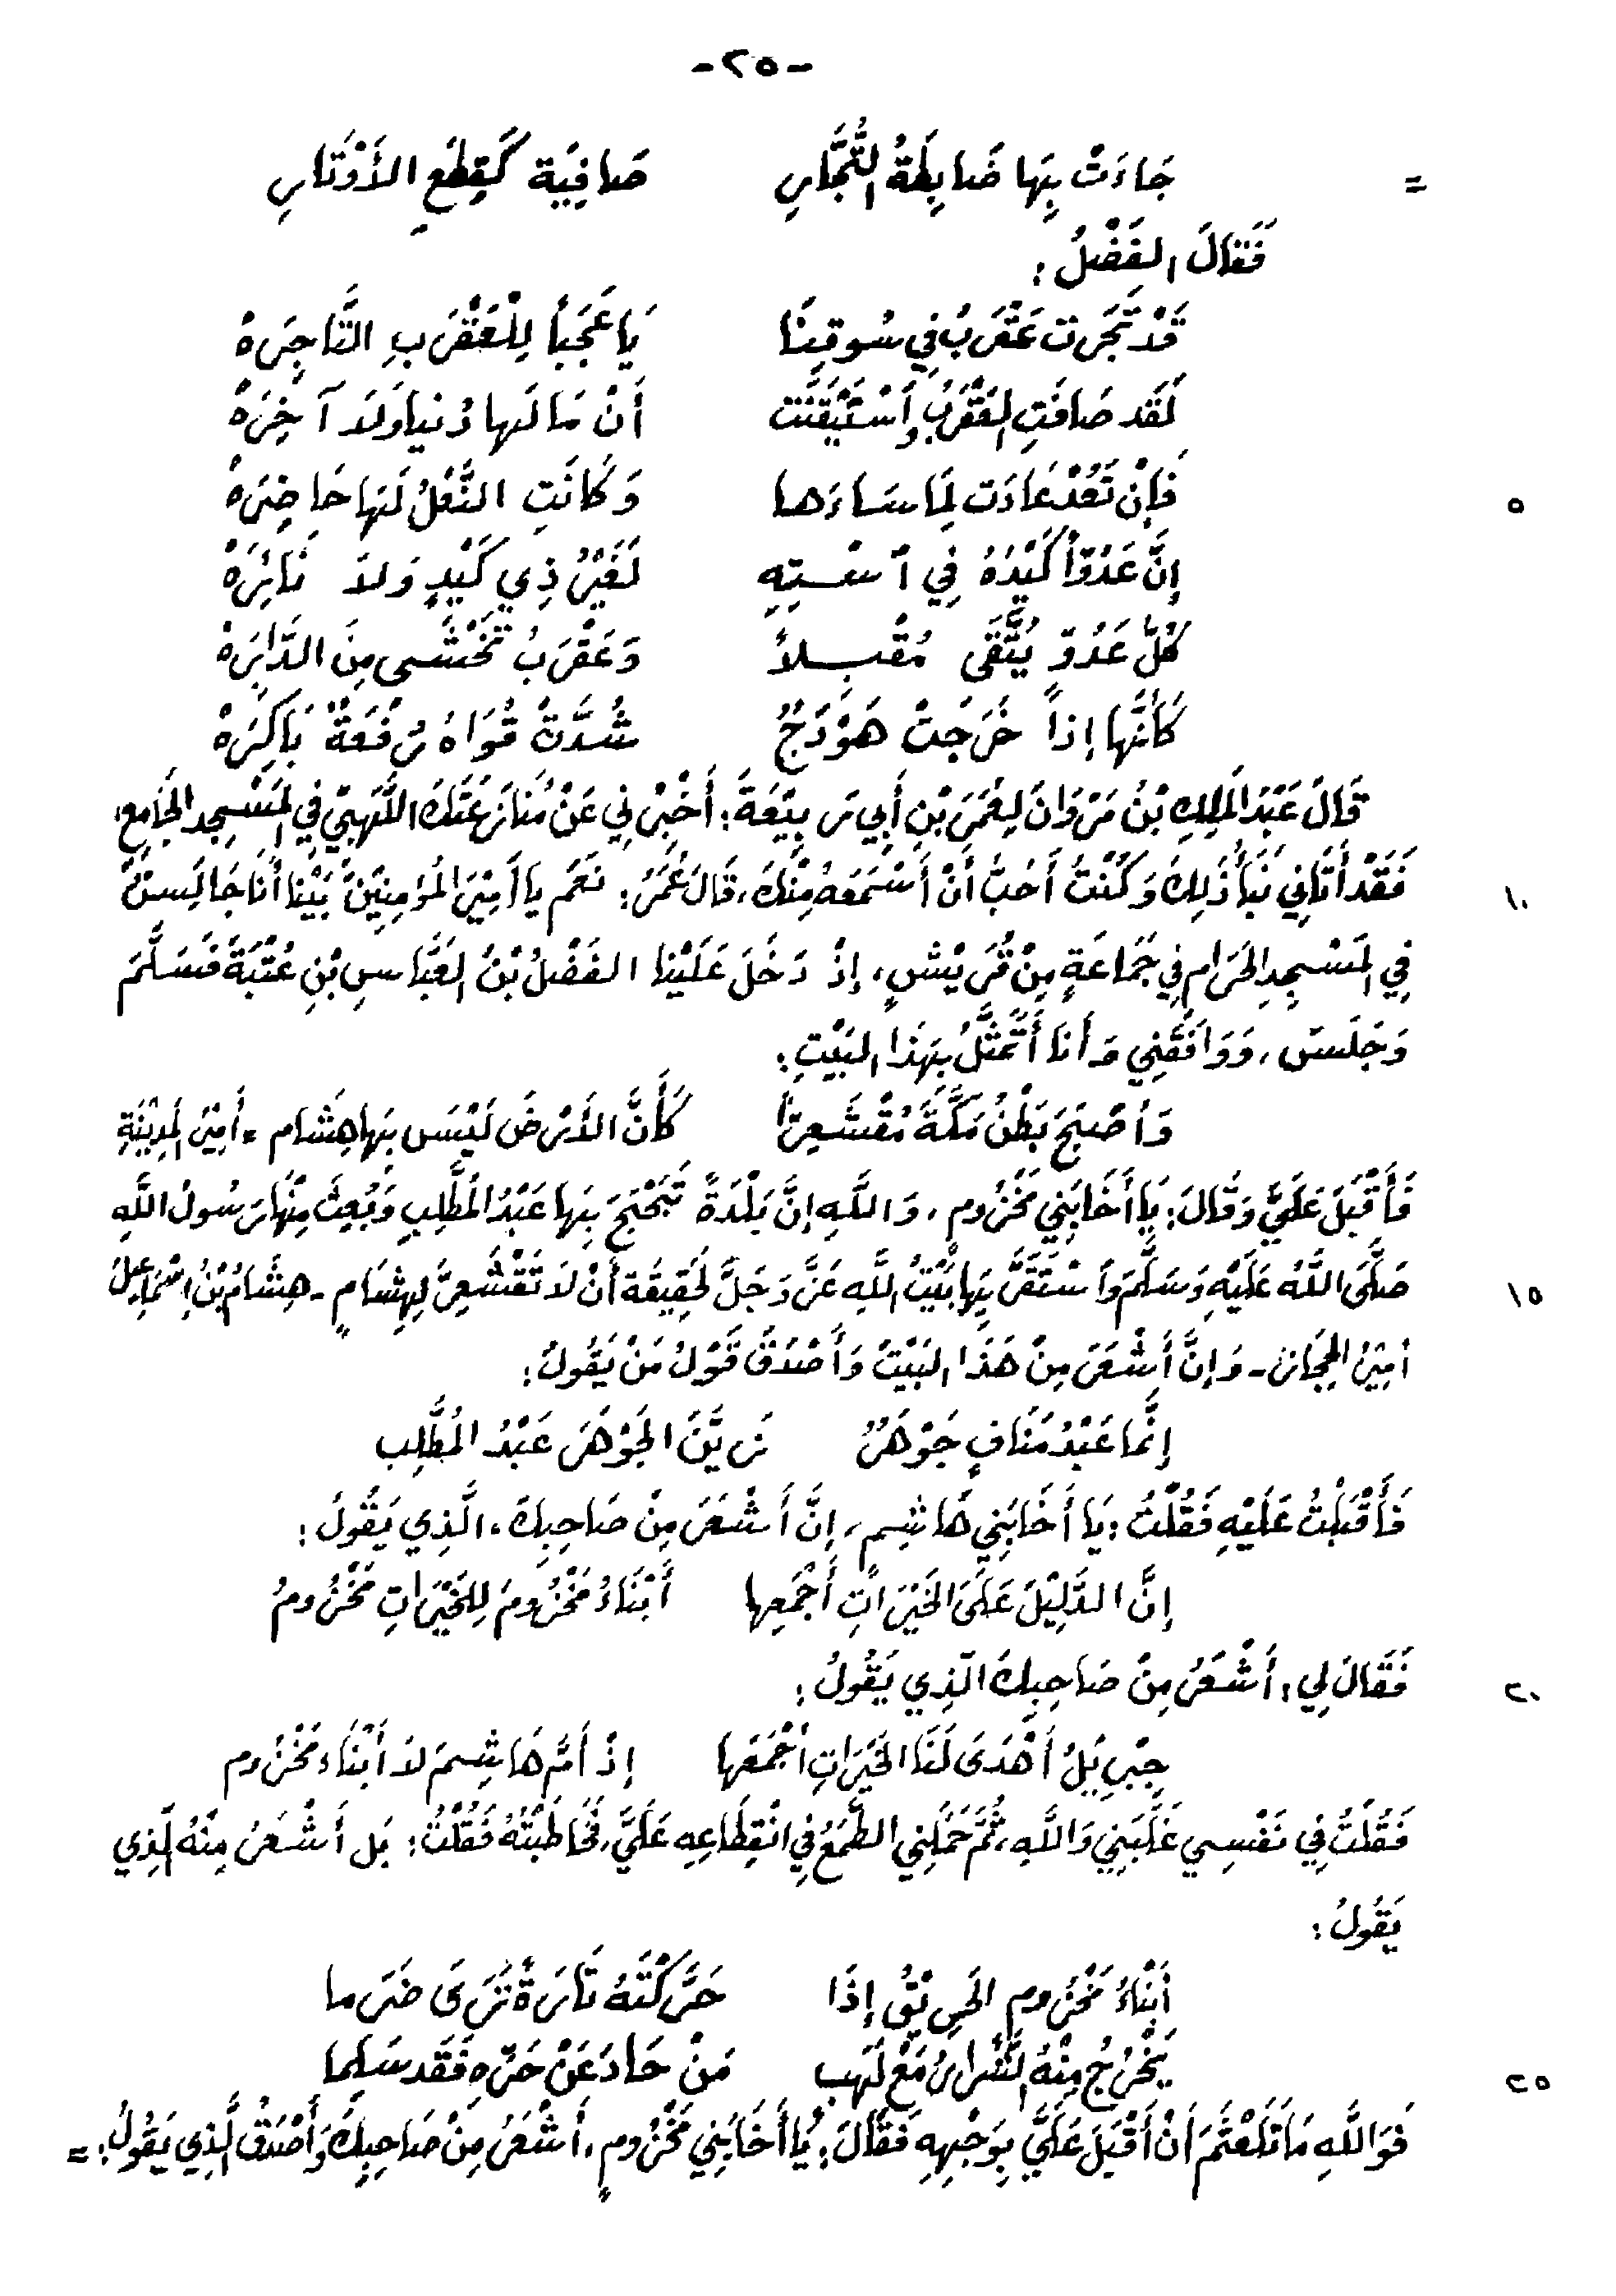 -٢٥-
= جَاءَتْ بِهَا ضَابِطَةُ التُّجَّارِ صَافِيَة كَقِطَعِ الأَوْتَارِ
فَقَالَ الفَضْلُ:
قَدْ تَجَّرَت عَقْرَبُ فِي سُوقِنَا يَا عَجَباً لِلْعَقْرَبِ التَّاجِرَهْ
لَقَد ضَافَتِ العَقْرَبُ وَاسْتَيْقَنَت أَنْ مَا لَها دُنيا وَلاَ آخِرَهْ
٥ فَإِنْ تَعُدْ عَادَت لِمَا سَاءَها وَكَانَتِ النَّعْلُ لَهَا حَاضِرَهْ
إِنَّ عَدُوّاً كَيْدُهُ فِي اسْتِهِ لَغَيْرُ ذِي كَيْدٍ وَلاَ نَائِرَهْ
كُلُّ عَدُوّ يُتَّقَى مُقْبِلاً وَعَقْرَبُ تُخْشَى مِنَ الدَّابِرَهْ
كَأَنَّها إذاً خَرَجتْ هَوْدَجٌ شُدَّتْ قُوَاهُ رُفْعَةٌ بَاكِرَهْ
قَالَ عَبْدُ المَلِكِ بْنُ مَرْوَانَ لِعُمَرَ بْنِ أَبِي رَبِيْعَةَ: أَخْبِرْنِي عَنْ مُنَازَعَتِكَ اللَّهَبِيَّ فِي المَسْجِدِ الجَامِعِ،
١٠ فَقَدْ أَتَانِي نَبَأُ ذَلِكَ وَكُنْتُ أَحَبُّ أَنْ أَسْمَعَهُ مِنْكَ، قَالَ عُمَرُ: نَعَم يا أَمِيْرَ المُؤمِنِيْنَ بَيْنا أَنَا جَالِسٌ
فِي المَسْجِدِ الحَرَامِ فِي جَمَاعَةٍ مِنْ قُرَيْشٍ، إِذْ دَخَلَ عَلَيْنا الفَضْلُ بْنُ العَبَّاسِ بْنِ عُتْبَةَ فَسَلَّمَ
وَجَلَسَ، وَوَافَقَنِي وَأَنا أَتَمَثَّلُ بِهَذَا البَيْتِ:
وَأَصْبَحَ بَطْنُ مَكَّةَ مُقْشَعِرّاً كَأَنَّ الأَرْضَ لَيْسَ بِها هِشَام - أَمِيْرَ المَدِيْنَةِ
فَأَقْبَلَ عَلَيَّ وَقَالَ: يَا أَخَا بَنِي مَخْزُومٍ، وَاللَّهِ إِنَّ بَلْدَةً تَبَحْبَحَ بِها عَبْدُ المُطَّلِبِ وَبُعِثَ مِنْهَا رَسُولُ اللَّهِ
١٥ صَلَّى اللَّهُ عَلَيْهِ وَسَلَّمَ وَاسْتَقَرَّ بِهَا بَيْتُ اللَّهِ عَزَّ وَجَلَّ لَحَقِيقَة أَنْ لاَ تَقْشَعِرَّ لِهِشَامٍ - هِشَامُ بْنُ إِسْمَاعِيلَ
أَمِيْرُ الحِجَازِ - وَإِنَّ أَشْعَرَ مِنْ هَذَا البَيْتِ وَأَصْدَقَ قَوْلُ مَنْ يَقُولُ:
إِنَّما عَبْدُ مَنَافٍ جَوْهَرٌ زَيَّنَ الجَوْهَرَ عَبْدُ المُطَّلِب
فَأَقْبَلْتُ عَلَيْهِ فَقُلْتُ: يَا أَخَا بَنِي هَاشِمٍ، إِنَّ أَشْعَرَ مِنْ صَاحِبِكَ، الَّذِي يَقُولُ:
إِنَّ الدَّلِيْلَ عَلَى الخَيْرَاتِ أَجْمَعِها أَبْنَاءُ مَخْزُومَ لِلخَيْرَاتِ مَخْزُومُ
٢٠ فَقَالَ لِي: أَشْعَرُ مِنْ صَاحِبِكَ الَّذِي يَقُولُ:
جِبْرِيْلُ أَهْدَى لَنَا الخَيْرَاتِ أَجْمَعَها إِذْ أَمَّ هَاشِمَ لاَ أَبْنَاءَ مَخْزُومِ
فَقُلْتُ فِي نَفْسِي غَلَبَنِي وَاللَّهِ، ثُمَّ حَمَلَنِي الطَّمَعُ فِي انْقِطَاعِهِ عَلَيَّ، فَخَاطَبْتُهُ فَقُلْتُ: بَل أَشْعَرُ مِنْهُ الَّذِي
يَقُولُ:
أَبْنَاءُ مَخْزُومِ الحَرِيْقُ إِذَا حَرَّكْتَهُ تَارَةً تَرَى ضَرَما
٢٥ يَخْرُجُ مِنْهُ الشَّرَارُ مَعْ لَهَبٍ مَنْ حَادَ عَنْ حَرِّهِ فَقَد سَلِما
فَوَاللَّهِ مَا تَلَعْثَمَ أَنْ أَقْبَلَ عَلَيَّ بِوَجْهِهِ فَقَالَ: يَا أَخَا بَنِي مَخْزُومٍ، أَشْعَرُ مِنْ صَاحِبِكَ وَأَصْدَقُ الَّذِي يَقُولُ: =